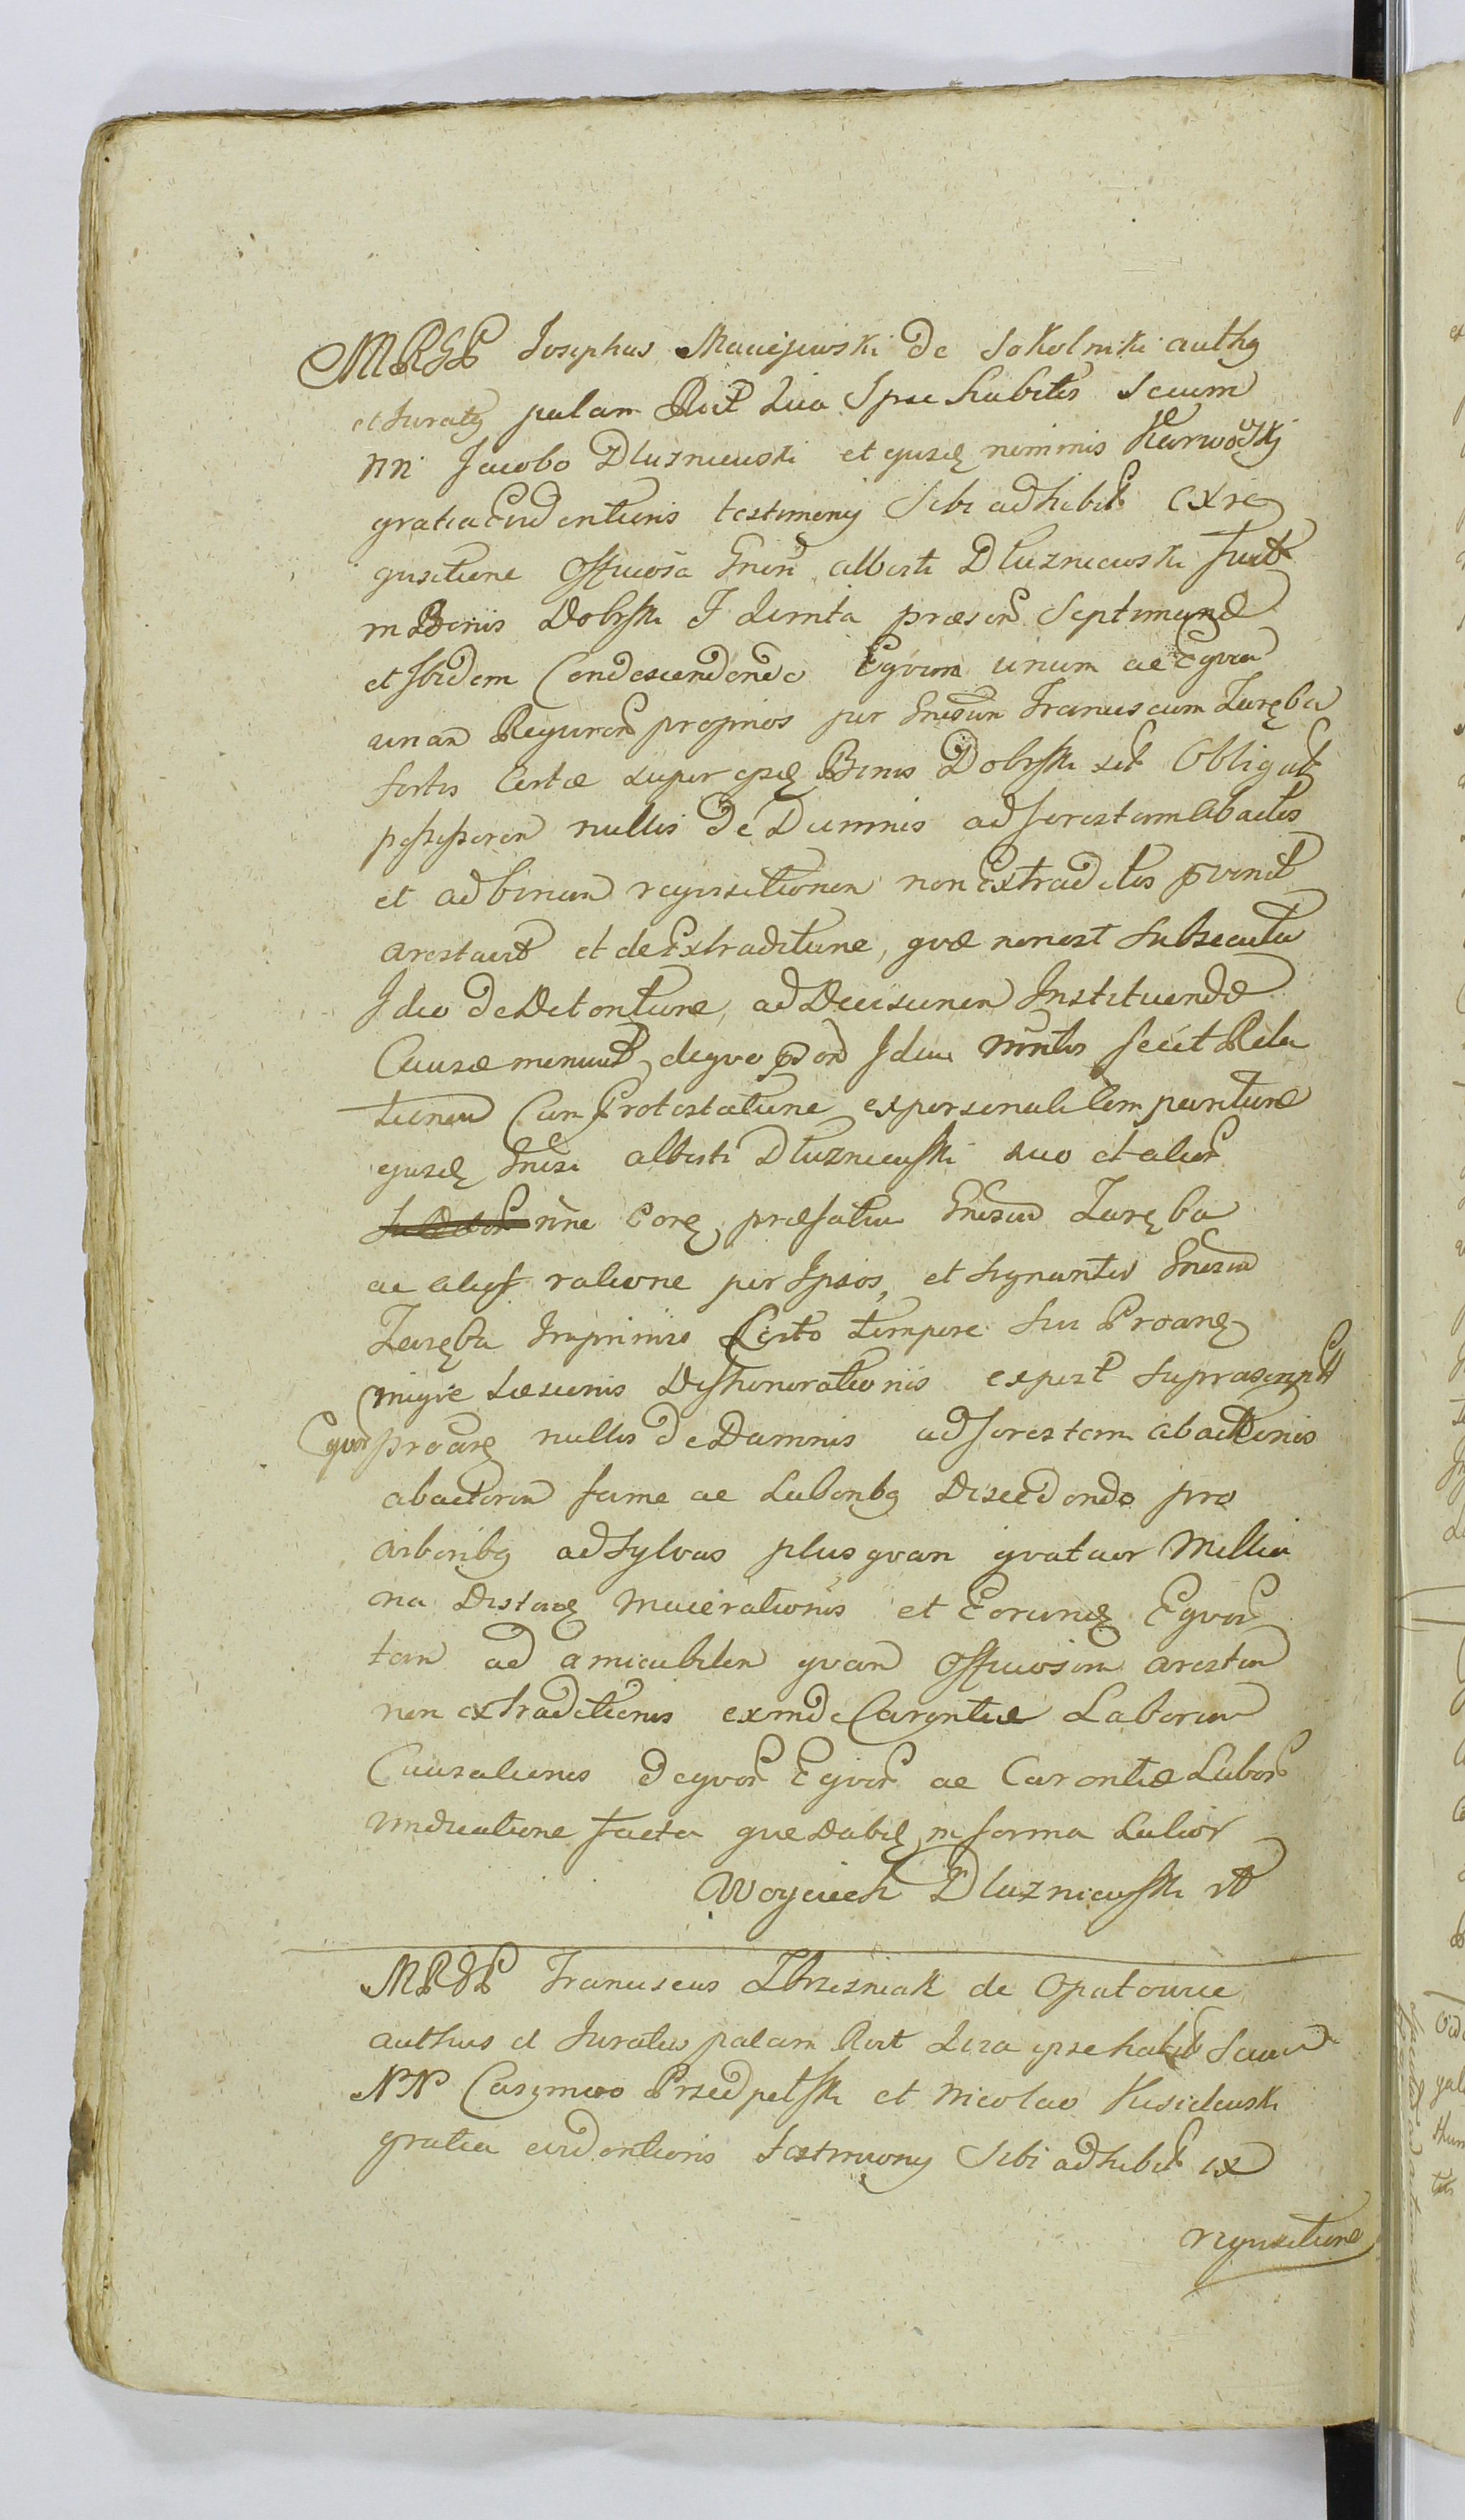 MRGP Josephus Maciejewski de Sokolniki authq
et Juratq palam Rcit Quia Ipse habitis Secum
NN Jacobo Dluzniewski et ejusdę nominis Karwowski
gratia Evidentioris testimony Sibi adhibit exre
qusitione Officiosa Gnēri Alberti Dluzniewski fuit
in Bonis Dobrski F 4 vinta præsen Septimanæ
et Ibidem Condescendendo Eqvum unum ac Eqvam
unam Requiren proprios per Gnrosum Franciscum Zaręba
sortis Certæ super ejusdę Bonis Dobrski sit Obligat
possessorem nullis de Damnis ad forestam abactos
et ad binam requisitionem non Extraditos pvenit
arestavit et de Extraditione, qvæ non est Subsecuta
Ideo de Detentione, ad Decisionem Instituendæ
Causæ monuit, deqvo Idem Mnrlis fecit Rela
tionem Cum Protestatione ex personali Compantione
ejusdę Gnrosi Alberti Dluzniewski suo et alior
nne Corq præfatum Gnrosum Zaręba
ac alios ratione per Ipsos, et signanter Gnrosum
Zaręba Imprimis Certo tempore Sui Proarę
miqve Læsionis Dishonorationis expost suprascrpt
Eqvor proarę nullis de Damnis ad forestam abactionis
abactorum fame ac Laboribq Discedendo pro
arboribq ad Sylvas plusqvam qvatuor Millia
ria Distaę macerationis et Eorundę Eqvor
tam ad amicabilem qvam Officiosam arestam
non extraditionis exinde Carentiæ Laborum
Causationis deqvor Eqvor ac Carentiæ Labor
vindicatione facta qve Dabit in forma Latior
Woyciech Dluzniewski
MRGP Franciscus Zbrzezniak de Opatowiec
authus et Juratus palam Rcit Quia ipse habit Secum
NN Casimiro Przedpelski et Nicolao Kusidewski
gratia evidentioris testimony Sibi adhibit ex
requisitione